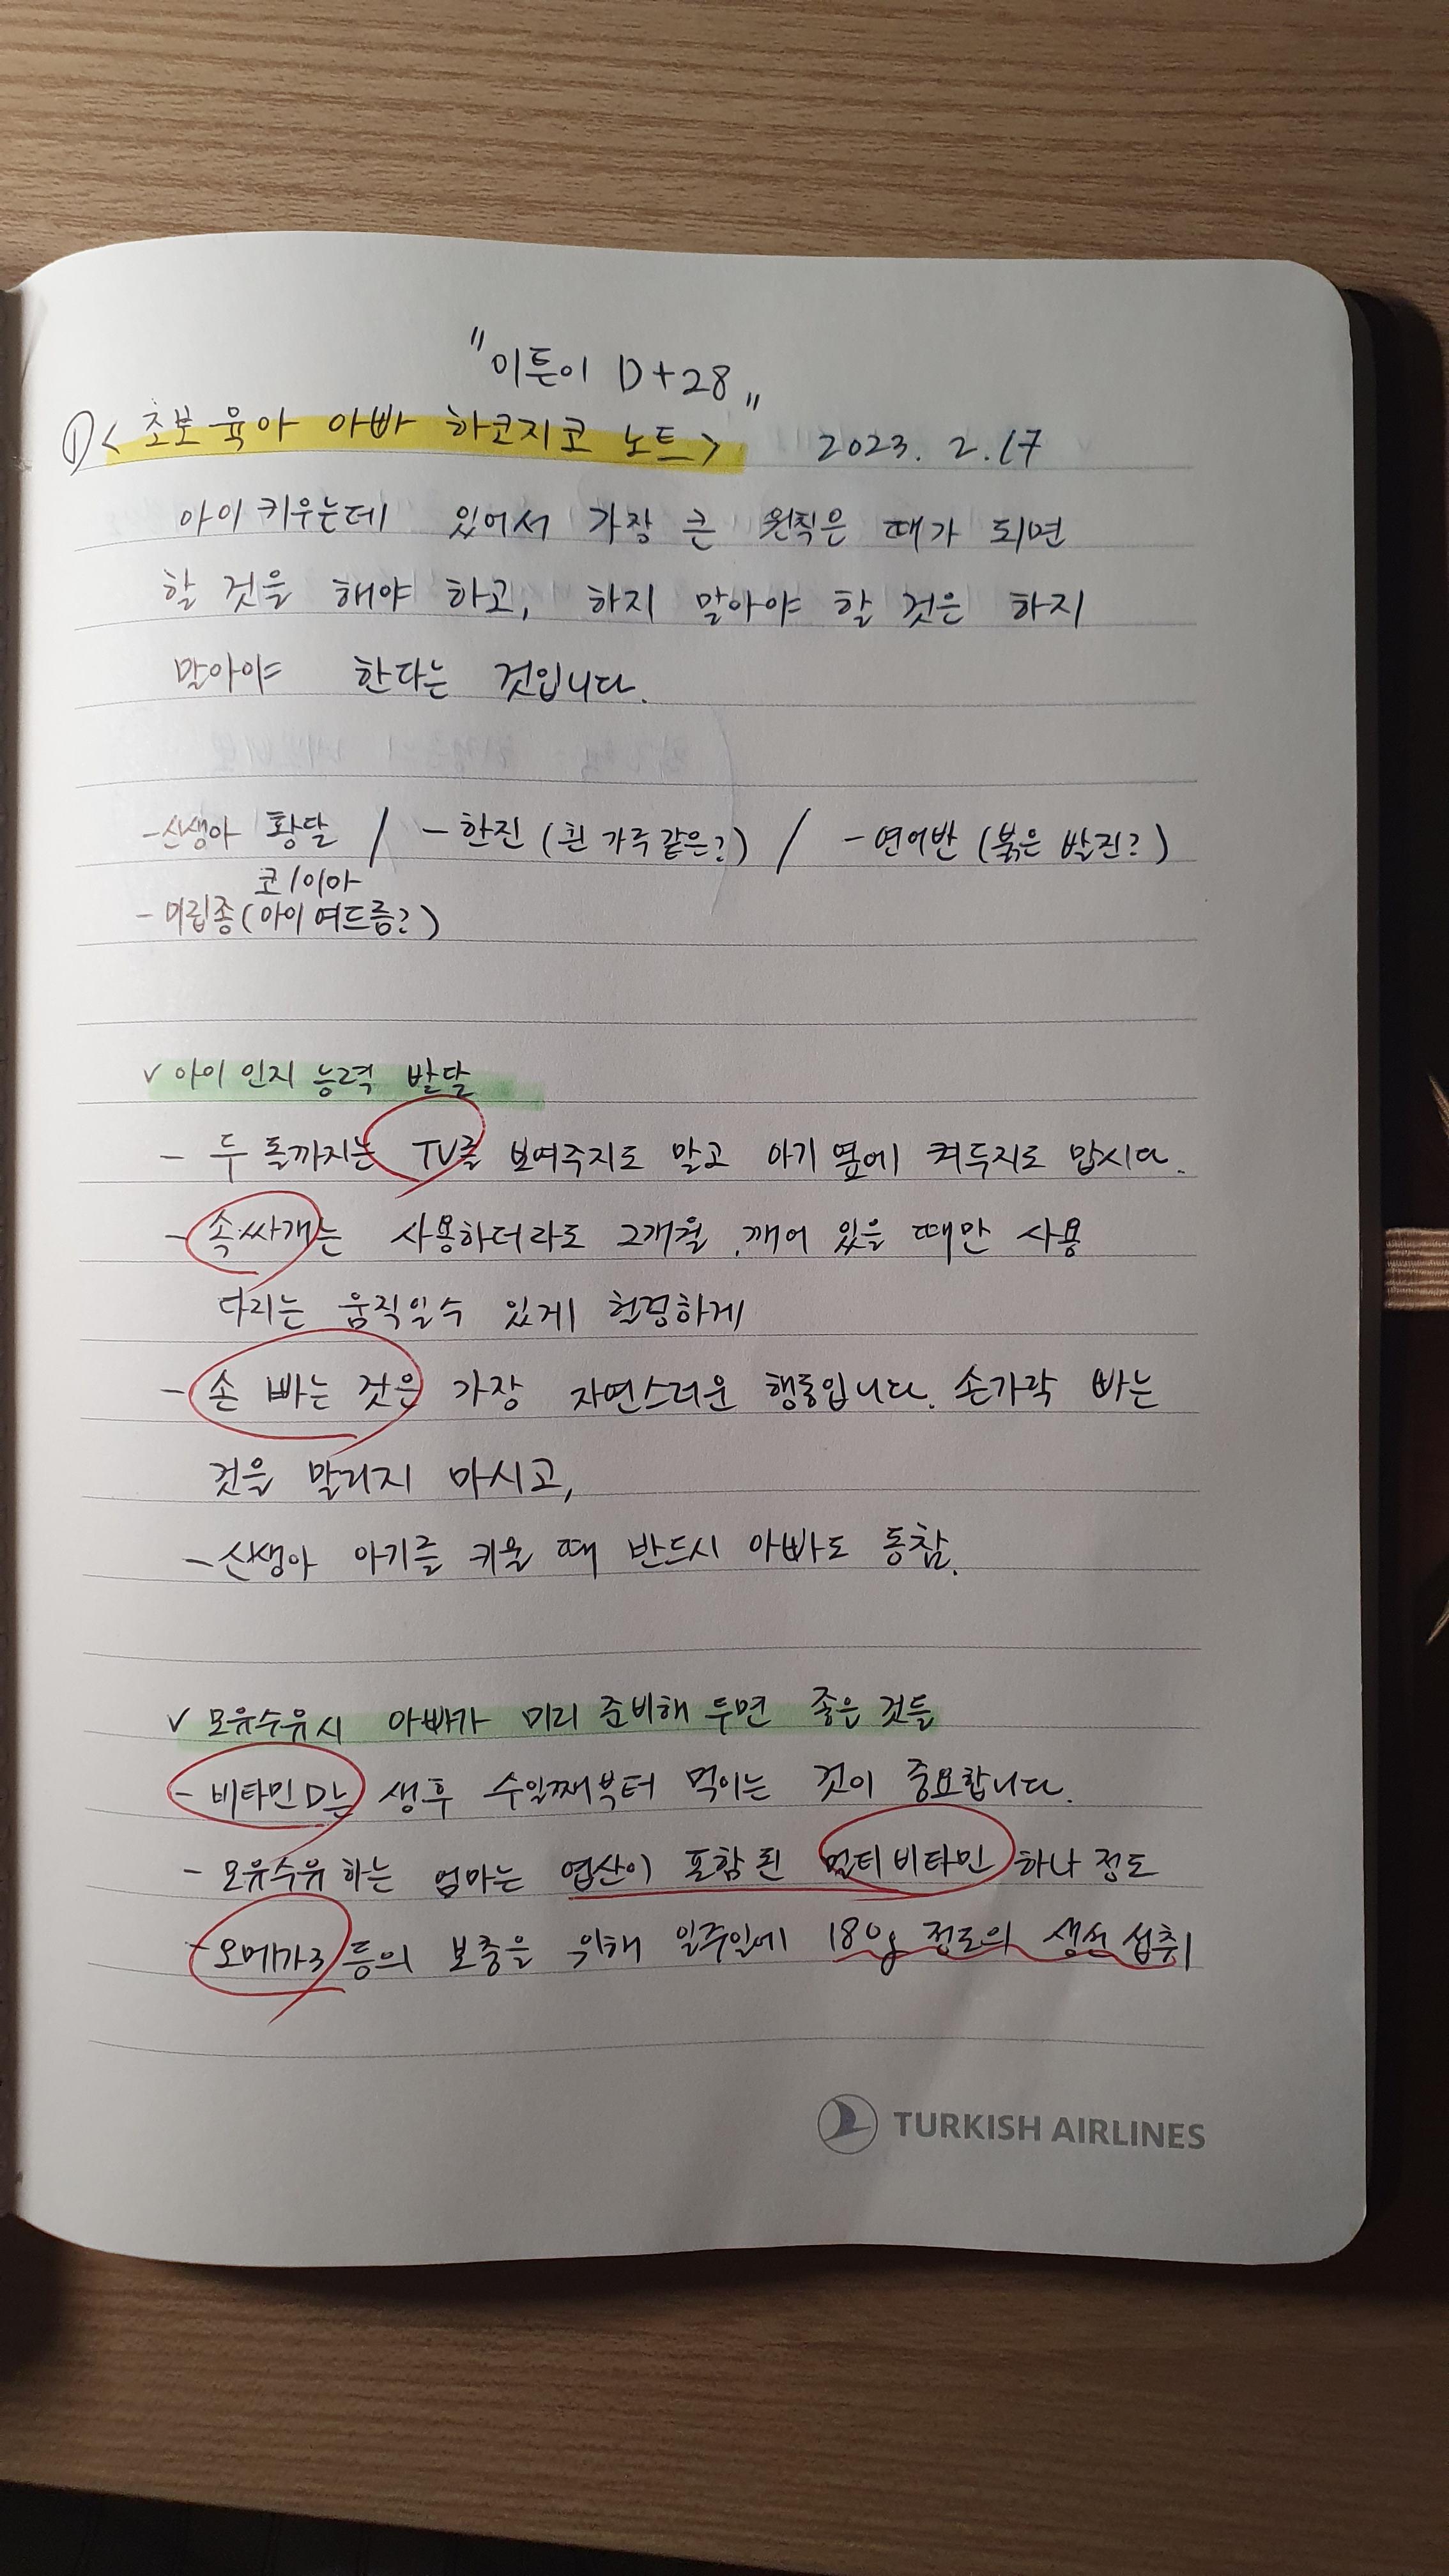 "이튼이 D+28"
① <초보 육아 아빠 하코지코 노트> 2023. 2. 17
아이 키우는데 있어서 가장 큰 원칙은 때가 되면
할 것을 해야 하고, 하지 말아야 할 것은 하지
말아야 한다는 것입니다.
-신생아 황달 / -한진 (흰 가루 같은?) / -연어반 (붉은 발진?)
코/이마
- 미립종 (아이 여드름?)
✓ 아이 인지 능력 발달
- 두 돌까지는 TV를 보여주지도 말고 아기 옆에 켜두지도 맙시다.
- 속싸개는 사용하더라도 2개월, 깨어 있을 때만 사용
다리는 움직일수 있게 헐렁하게
- 손 빠는 것은 가장 자연스러운 행동입니다. 손가락 빠는
것을 말리지 마시고,
- 신생아 아기를 키울 때 반드시 아빠도 동참.
✓ 모유수유시 아빠가 미리 준비해 두면 좋은 것들
- 비타민D는 생후 수일째부터 먹이는 것이 중요합니다.
- 모유수유 하는 엄마는 엽산이 포함된 멀티비타민 하나 정도
- 오메가3 등의 보충을 위해 일주일에 180g 정도의 생선 섭취
TURKISH AIRLINES